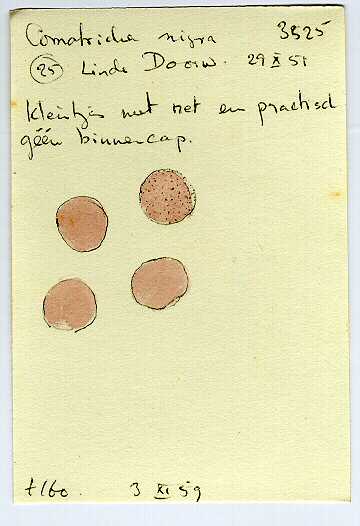 Comatricha nigra 3825
(25) Linde Doorw. 29 X 51
kleintjes met net en practisch
géén binnencap.
t160. 3 XI 59